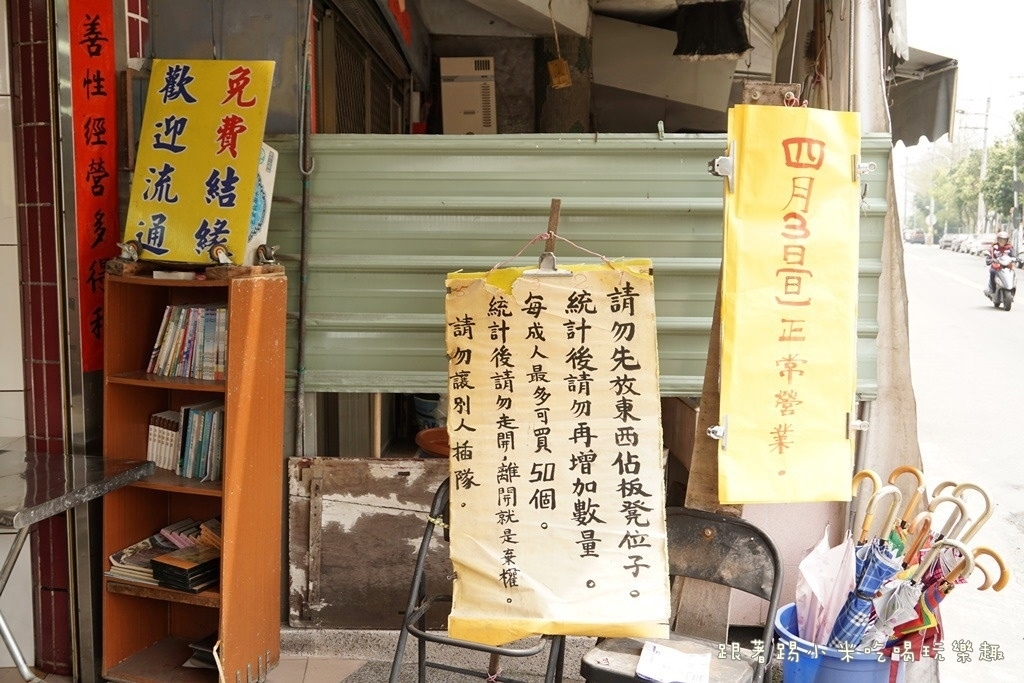 善性經營多得
免費結緣
歡迎流通
請勿先放東西佔板凳位子。
統計後請勿再增加數量。
每成人最多可買50個。
統計後請勿走開,離開就是棄權。
請勿讓別人插隊。
四月3日(日)正常營業。
跟著踢小米吃喝玩樂趣